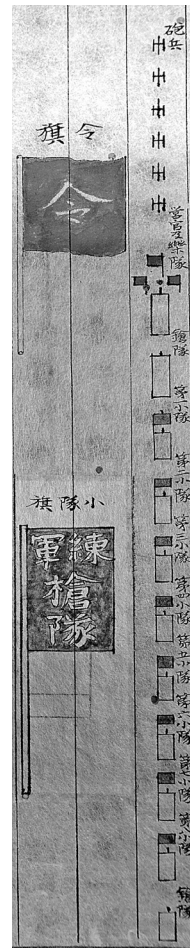 砲兵
樂隊
鎗隊
第一小隊
第二小隊
第三小隊
第四小隊
第五小隊
第六小隊
第七小隊
第八小隊
鎗隊
令旗
令
小隊旗
練軍
槍
隊